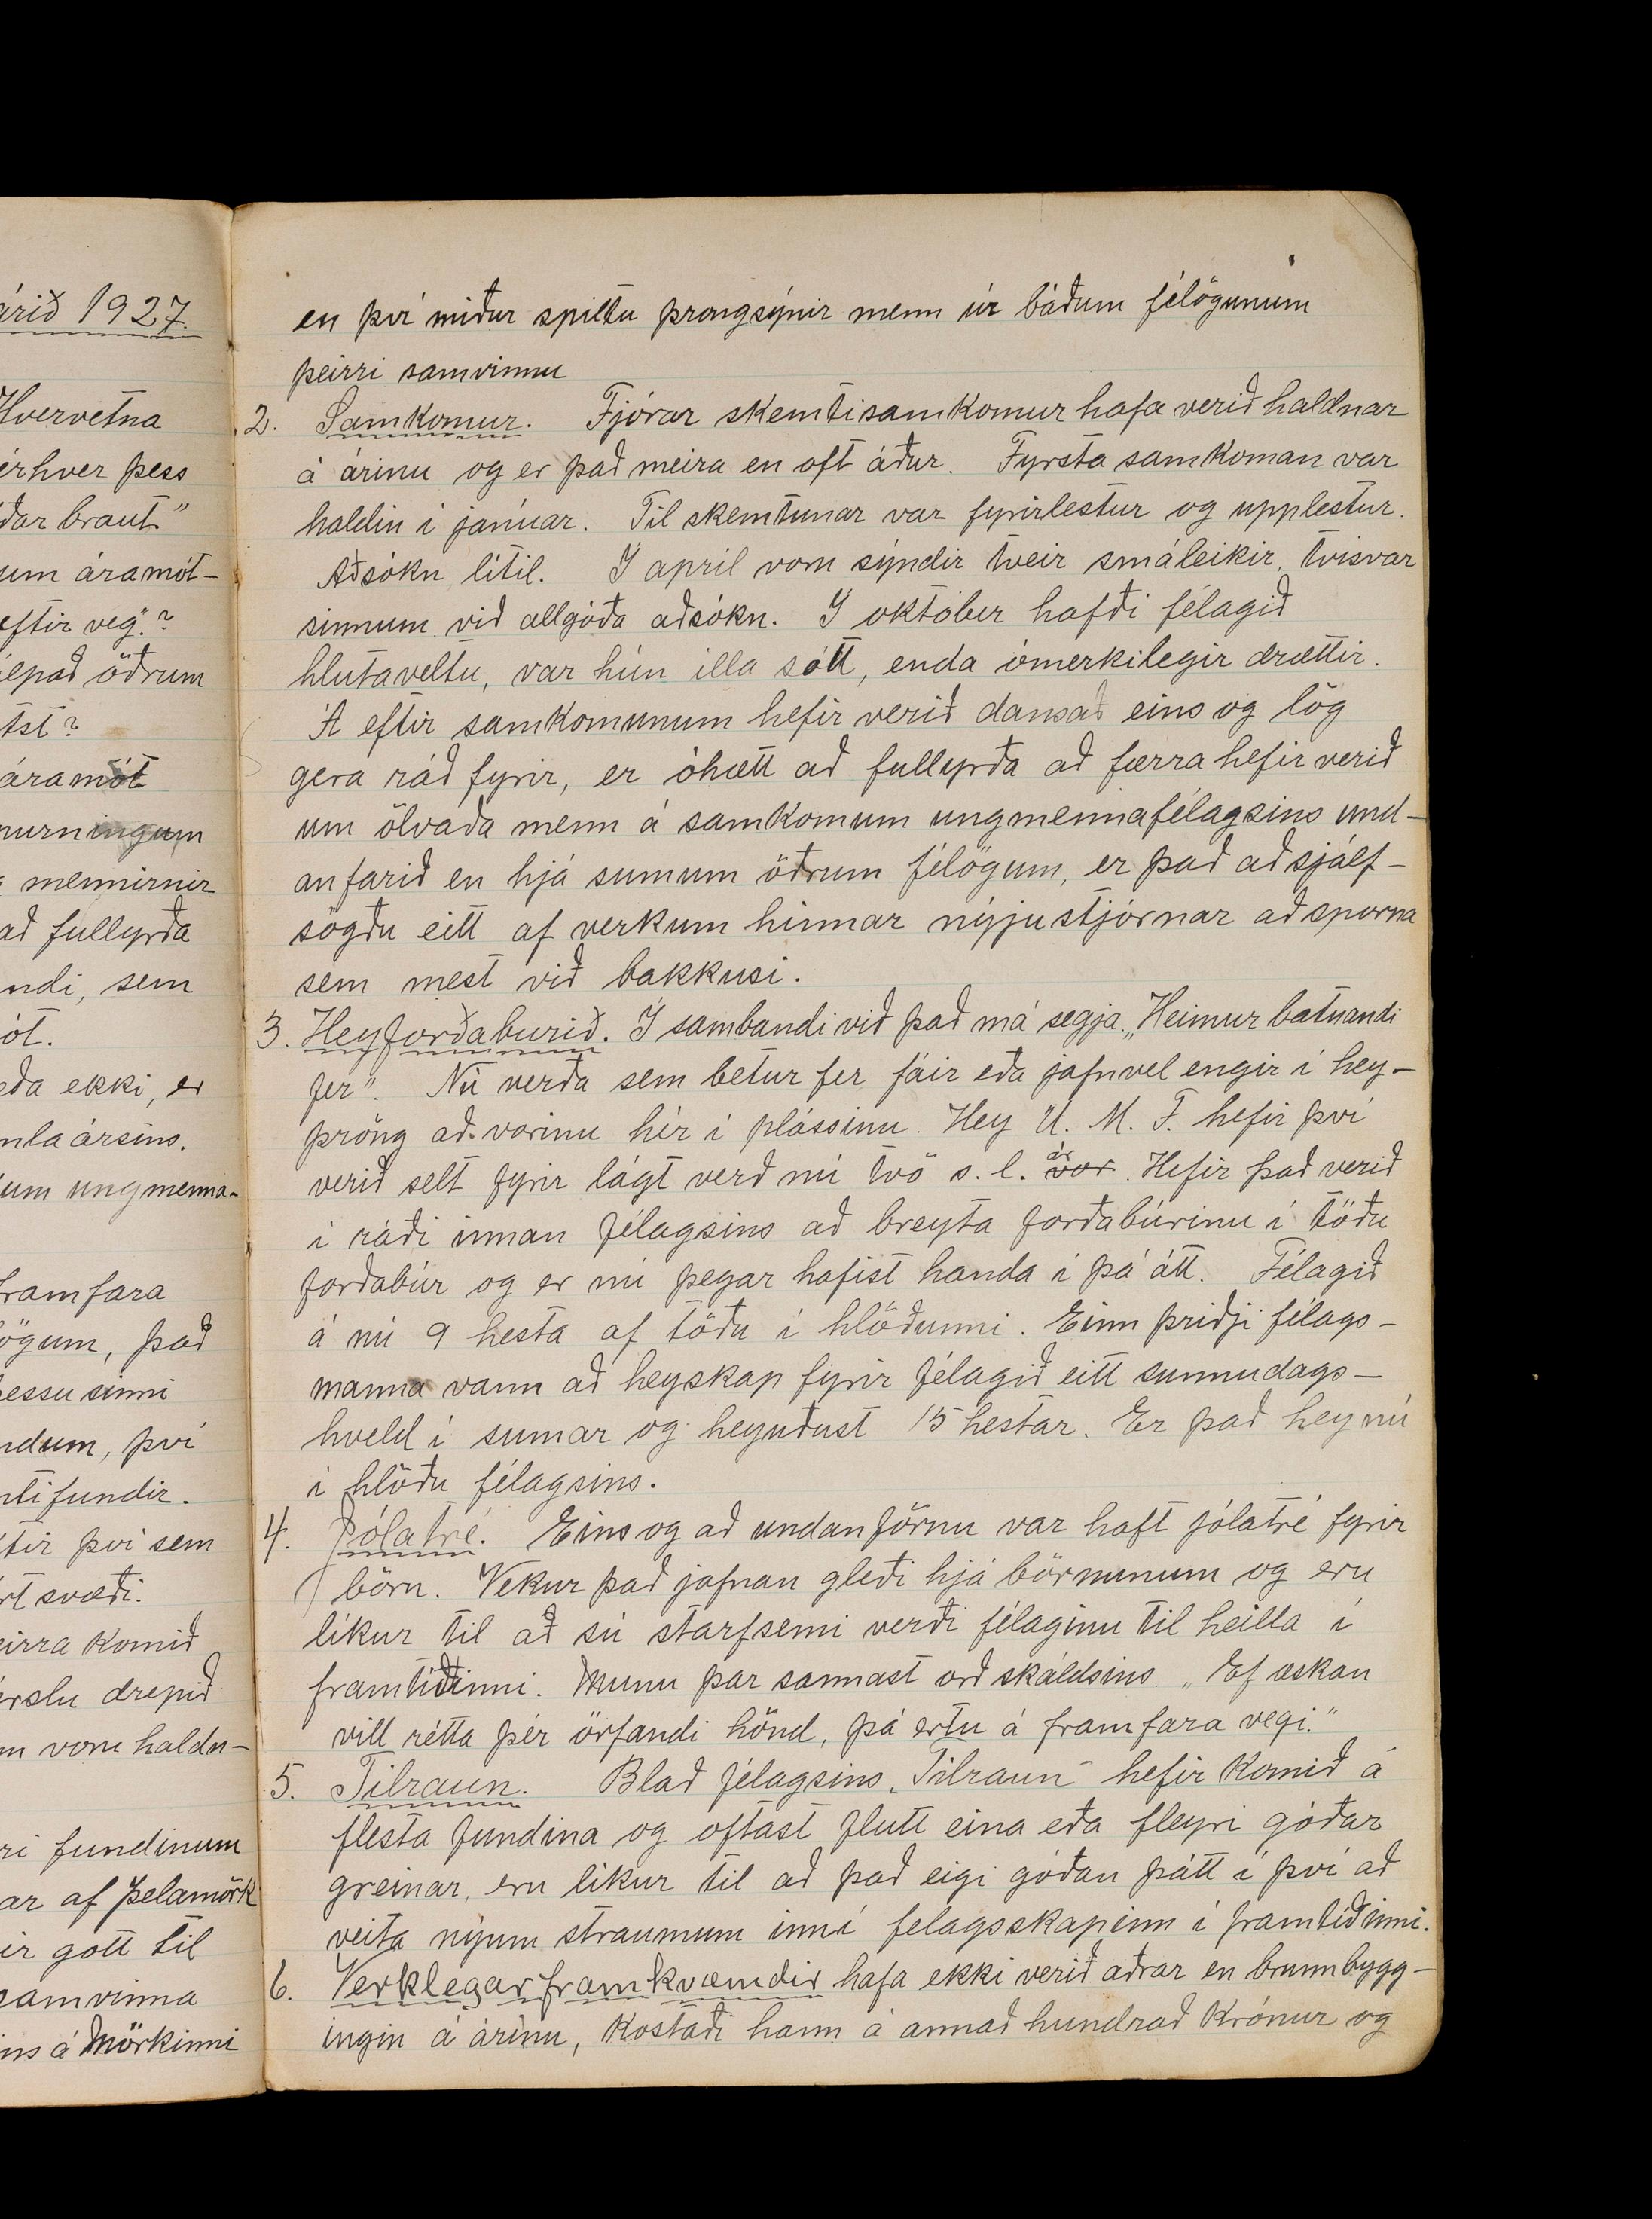 árið 1927.
Hvervetna
érhver þess
ðar braut"
um áramót-
eftir veg"?
öðrum
tst?
áramót
mennirnir
að fullyrða
ndi, sem
ót.
eða ekki, er
mla ársins.
um ungmenna-
framfara
lögum, það
þessu sinni
ndum, því
ntifundir.
tir því sem
rt svæði.
eirra komið
drepið
m voru haldn-
ri fundinum
ar af Þelamörk
ir gott til
samvinna
ins á Mörkinni
en því miður spiltu þrongsýnir menn úr báðum félögunum
þeirri samvinnu
2. Samkomur. Fjórar skemtisamkomur hafa verið haldnar
á árinu og er það meira en oft áður. Fyrsta samkoman var
haldin i janúar. Til skemtunar var fyrirlestur og upplestur.
Aðsókn lítil. Í apríl voru sýndir tveir smáleikir, tvisvar
sinnum við allgóða aðsókn. Í október hafði félagið
hlutaveltu, var hún illa sótt, enda ómerkilegir drættir.
Á eftir samkomunum hefir verið dansað eins og lög
gera ráð fyrir, er óhætt að fullyrða að færra hefir verið
um ölvaða menn á samkomum ungmennafélagsins und-
anfarið en hjá sumum öðrum félögum, er það að sjálf-
sögðu eitt af verkum hinnar nýju stjórnar að sporna
sem mest við bakkusi.
3. Heyforðaburið. Í sambandi við það má segja. „Heimur batnandi
fer". Nú verða sem betur fer fáir eða jafnvel engir í hey-
þröng að vorinu hér í plássinu. Hey U. M. F. hefir því
verið selt fyrir lágt verð nú tvö s. l. ár vor. Hefir það verið
í ráði innan félagsins að breyta forðabúrinu í töðu
forðabúr og er nú þegar hafist handa í þá átt. Félagið
á nú 9 hesta af töðu í hlöðunni. Einn þriðji félags-
manna vann að heyskap fyrir félagið eitt sunnudags-
hveld í sumar og heyuðust 15 hestar. Er það hey nú
í hlöðu félagsins.
4. Jólatré. Eins og að undanförnu var haft jólatré fyrir
börn. Vekur það jafnan gleði hjá börnunum og eru
líkur til að sú starfsemi verði félaginu til heilla í
framtíðinni. Munu þar sannast orð skáldsins. „Ef æskan
vill rétta þér örfandi hönd, þá ertu á framfara vegi."
5. Tilraun. Blað félagsins „Tilraun" hefir komið á
flesta fundina og oftast flutt eina eða fleyri góðar
greinar, eru líkur til að það eigi góðan þátt í því að
veita nýum straumum inní felagsskapinn í framtíðinni.
6. Verklegar framkvæmdir hafa ekki verið aðrar en brunnbygg-
ingin á árinu, kostaði hann á annað hundrað krónur og